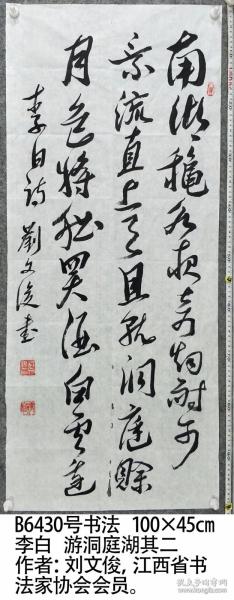 南湖穐水夜無烟耐可
乘流直上天且就洞庭賒
月色將船買酒白雲邊
李白詩 劉文俊書
B6430号书法 100×45cm
李白 游洞庭湖其二
作者: 刘文俊, 江西省书
法家协会会员。